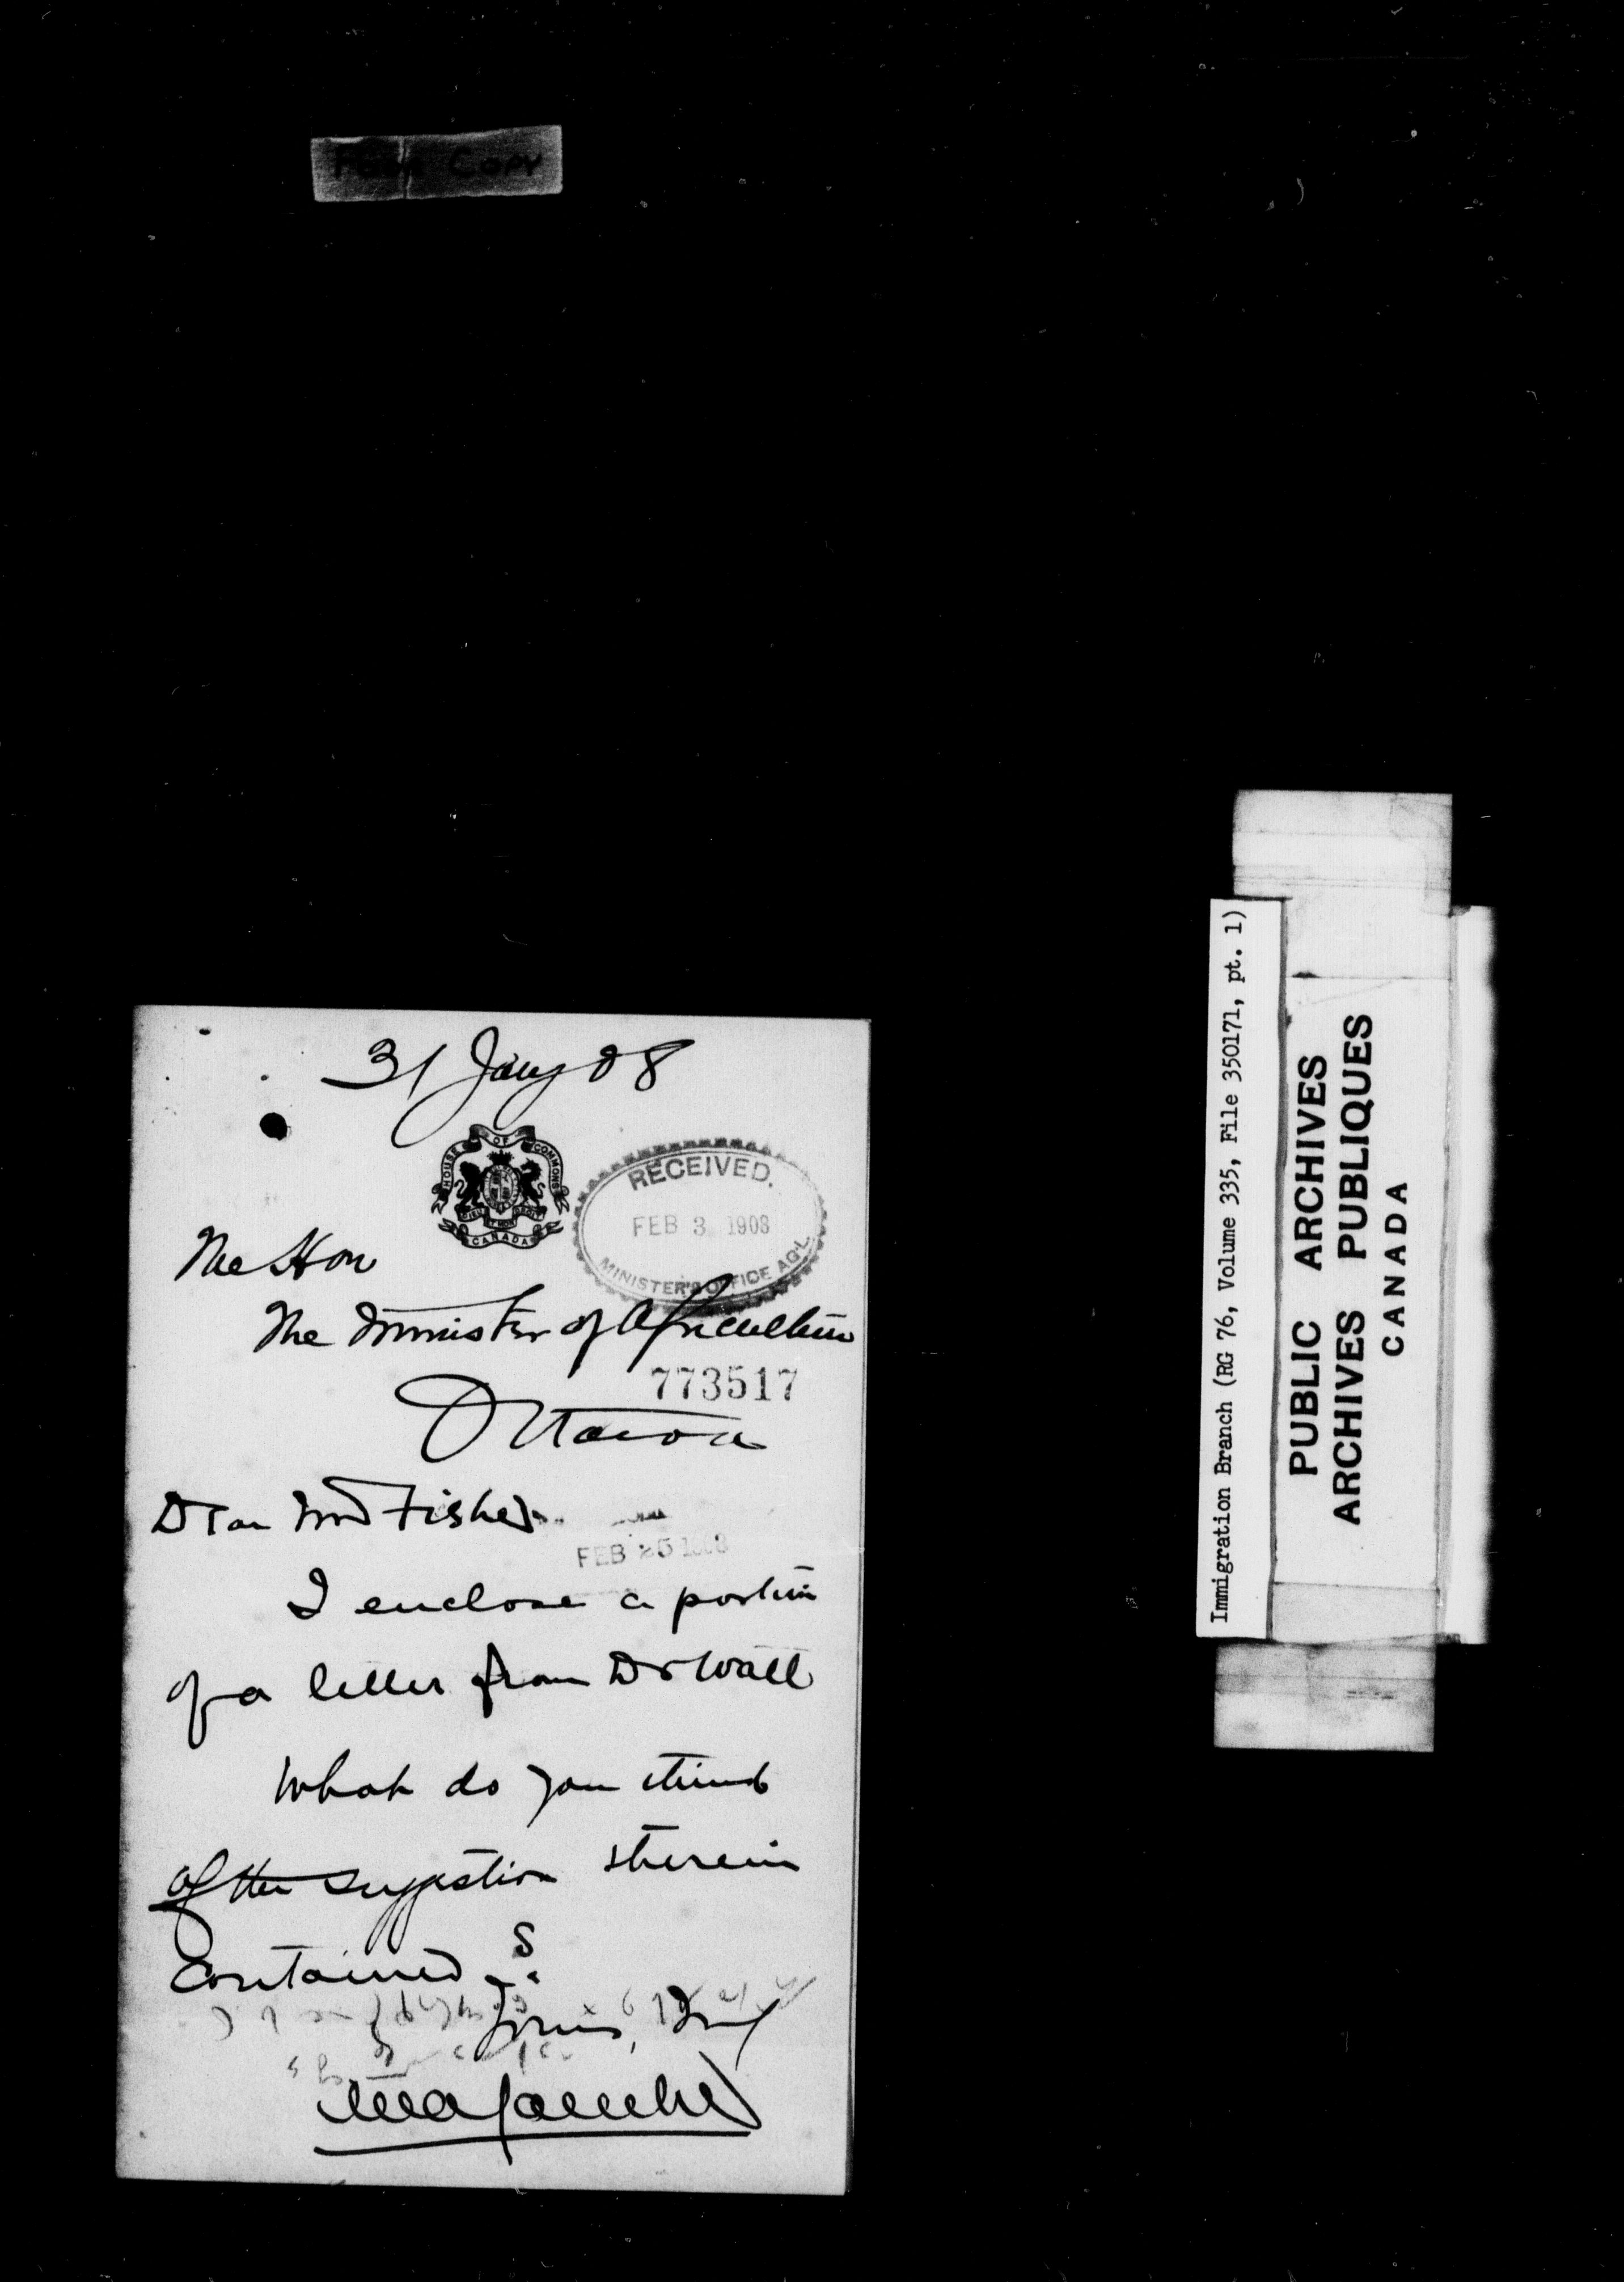 Poor Copy
31 Jany 08
HOUSE OF COMMONS
CANADA
RECEIVED.
FEB 3 1908
MINISTER'S OFFICE AG-L.
The Hon
The Minister of Agriculture
773517
Ottawa
Dear Mr Fisher
FEB 25 1908
I enclose a portion
of a letter from Dr Wall
What do you think
of the suggestion therein
contained?
Yours truly
Immigration Branch (RG 76, Volume 335, File 350171, pt. 1)
PUBLIC ARCHIVES
ARCHIVES PUBLIQUES
CANADA